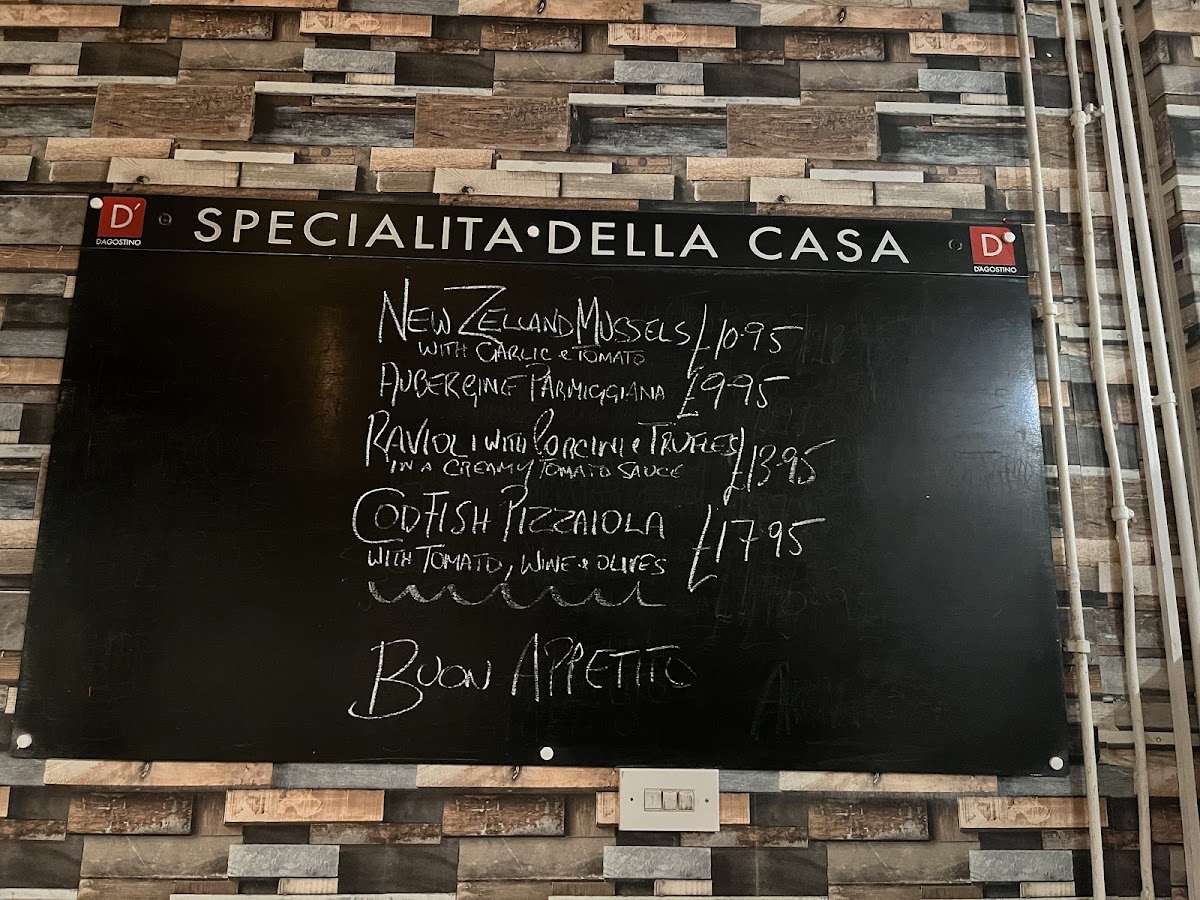 D'
DAGOSTINO
SPECIALITA•DELLA CASA
D'
D'AGOSTINO
NEW ZELLAND MUSSELS £10.95
WITH GARLIC e TOMATO
AUBERGINE PARMIGGIANA £9.95
RAVIOLI WITH PORCINI e TRUFLES £13.95
IN A CREAMY TOMATO SAUCE
CODFISH PIZZAIOLA £17.95
WITH TOMATO, WINE e OLIVES
BUON APPETITO